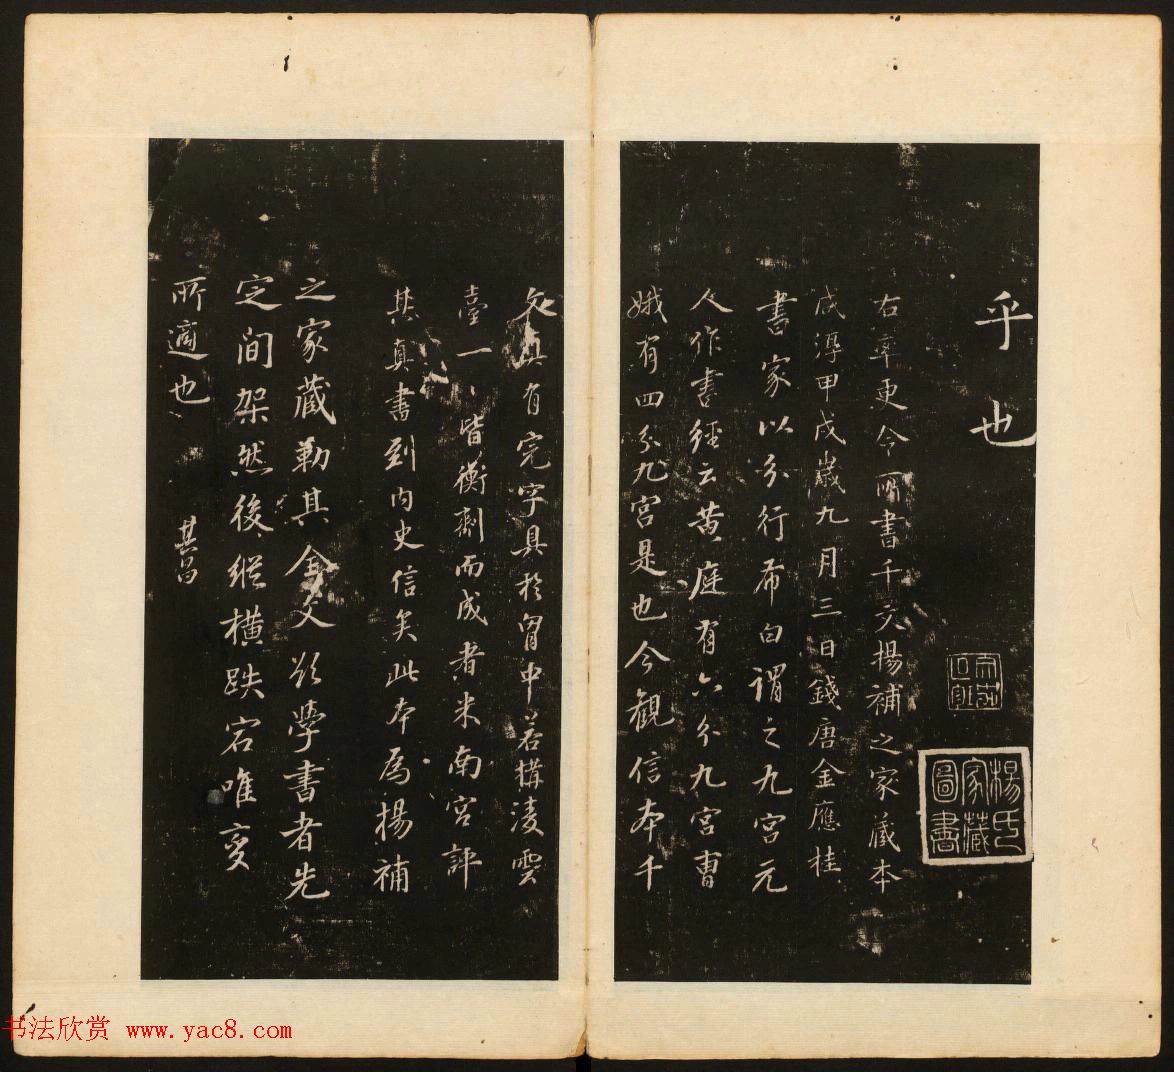 乎也
右率更令所書千文揚補之家藏本
咸淳甲戌歲九月三日錢唐金應桂
書家以分行布白謂之九宮元
人作書經云黃庭有六分九宮曹
娥有四分九宮是也今觀信本千
文真有完字具於胷中若構淩雲
臺一一皆衡剂而成者米南宮評
其真書到內史信矣此本為楊補
之家藏勒其全文欲學書者先
定間架然後縱橫跌宕唯變
所適也
其昌
楊氏家藏圖書
书法欣赏 www.yac8.com